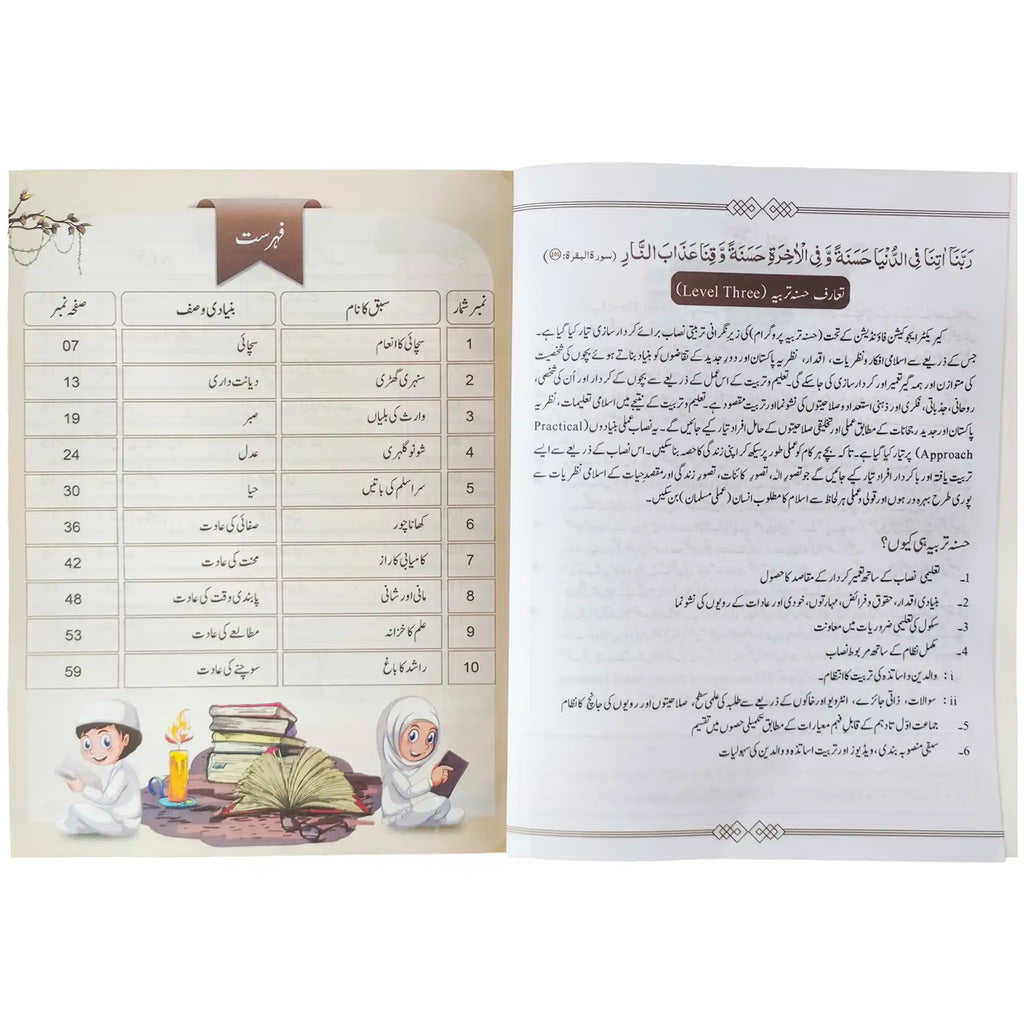 فہرست
نمبر شمار سبق کا نام بنیادی وصف صفحہ نمبر
1 سچائی کا انعام سچائی 07
2 سنہری گھڑی دیانت داری 13
3 وارث کی بلیاں صبر 19
4 شونو گلہری عدل 24
5 سر اسلم کی باتیں حیا 30
6 کھانا چور صفائی کی عادت 36
7 کامیابی کا راز محنت کی عادت 42
8 مانی اور شانی پابندی وقت کی عادت 48
9 علم کا خزانہ مطالعے کی عادت 53
10 راشد کا باغ سوچنے کی عادت 59
رَبَّنَاۤ اٰتِنَا فِی الدُّنْیَا حَسَنَةً وَّ فِی الْاٰخِرَةِ حَسَنَةً وَّ قِنَا عَذَابَ النَّارِ (سورۃ البقرۃ: 201)
تعارف حسنہ تربیہ (Level Three)
کیریکٹر ایجوکیشن فاؤنڈیشن کے تحت (حسنہ تربیہ پروگرام) کی زیر نگرانی تربیتی نصاب برائے کردار سازی تیار کیا گیا ہے۔
جس کے ذریعے سے اسلامی افکار و نظریات، اقدار، نظریہ پاکستان اور دورِ جدید کے تقاضوں کو بنیاد بناتے ہوئے بچوں کی شخصیت
کی متوازن اور ہمہ گیر تعمیر اور کردار سازی کی جا سکے گی۔ تعلیم و تربیت کے اس عمل کے ذریعے سے بچوں کے کردار اور اُن کی شخصی،
روحانی، جذباتی، فکری اور ذہنی استعداد و صلاحیتوں کی نشوونما اور تربیت مقصود ہے۔ تعلیم و تربیت کے نتیجے میں اسلامی تعلیمات، نظریہ
پاکستان اور جدید رجحانات کے مطابق عملی اور تخلیقی صلاحیتوں کے حامل افراد تیار کیے جائیں گے۔ یہ نصاب عملی بنیادوں (Practical
Approach) پر تیار کیا گیا ہے۔ تاکہ بچے ہر کام کو عملی طور پر سیکھ کر اپنی زندگی کا حصہ بنا سکیں۔ اس نصاب کے ذریعے سے ایسے
تربیت یافتہ اور با کردار افراد تیار کیے جائیں گے جو تصورِ الٰہ، تصورِ کائنات، تصورِ زندگی اور مقصدِ حیات کے اسلامی نظریات سے
پوری طرح بہرہ ور ہوں اور قولی و عملی ہر لحاظ سے اسلام کا مطلوب انسان (عملی مسلمان) بن سکیں۔
حسنہ تربیہ ہی کیوں؟
1۔ تعلیمی نصاب کے ساتھ تعمیر کردار کے مقاصد کا حصول
2۔ بنیادی اقدار، حقوق و فرائض، مہارتوں، خودی اور عادات کے رویوں کی نشوونما
3۔ سکول کی تعلیمی ضروریات میں معاونت
4۔ مکمل نظام کے ساتھ مربوط نصاب
i: والدین و اساتذہ کی تربیت کا انتظام۔
ii: سوالات، ذاتی جائزے، انٹرویو اور خاکوں کے ذریعے سے طلبہ کی علمی سطح، صلاحیتوں اور رویوں کی جانچ کا نظام
5۔ جماعت اوّل تا دہم کے قابلِ فہم معیارات کے مطابق تکمیلی حصوں میں تقسیم
6۔ سبقی منصوبہ بندی، ویڈیوز اور تربیت اساتذہ و والدین کی سہولیات